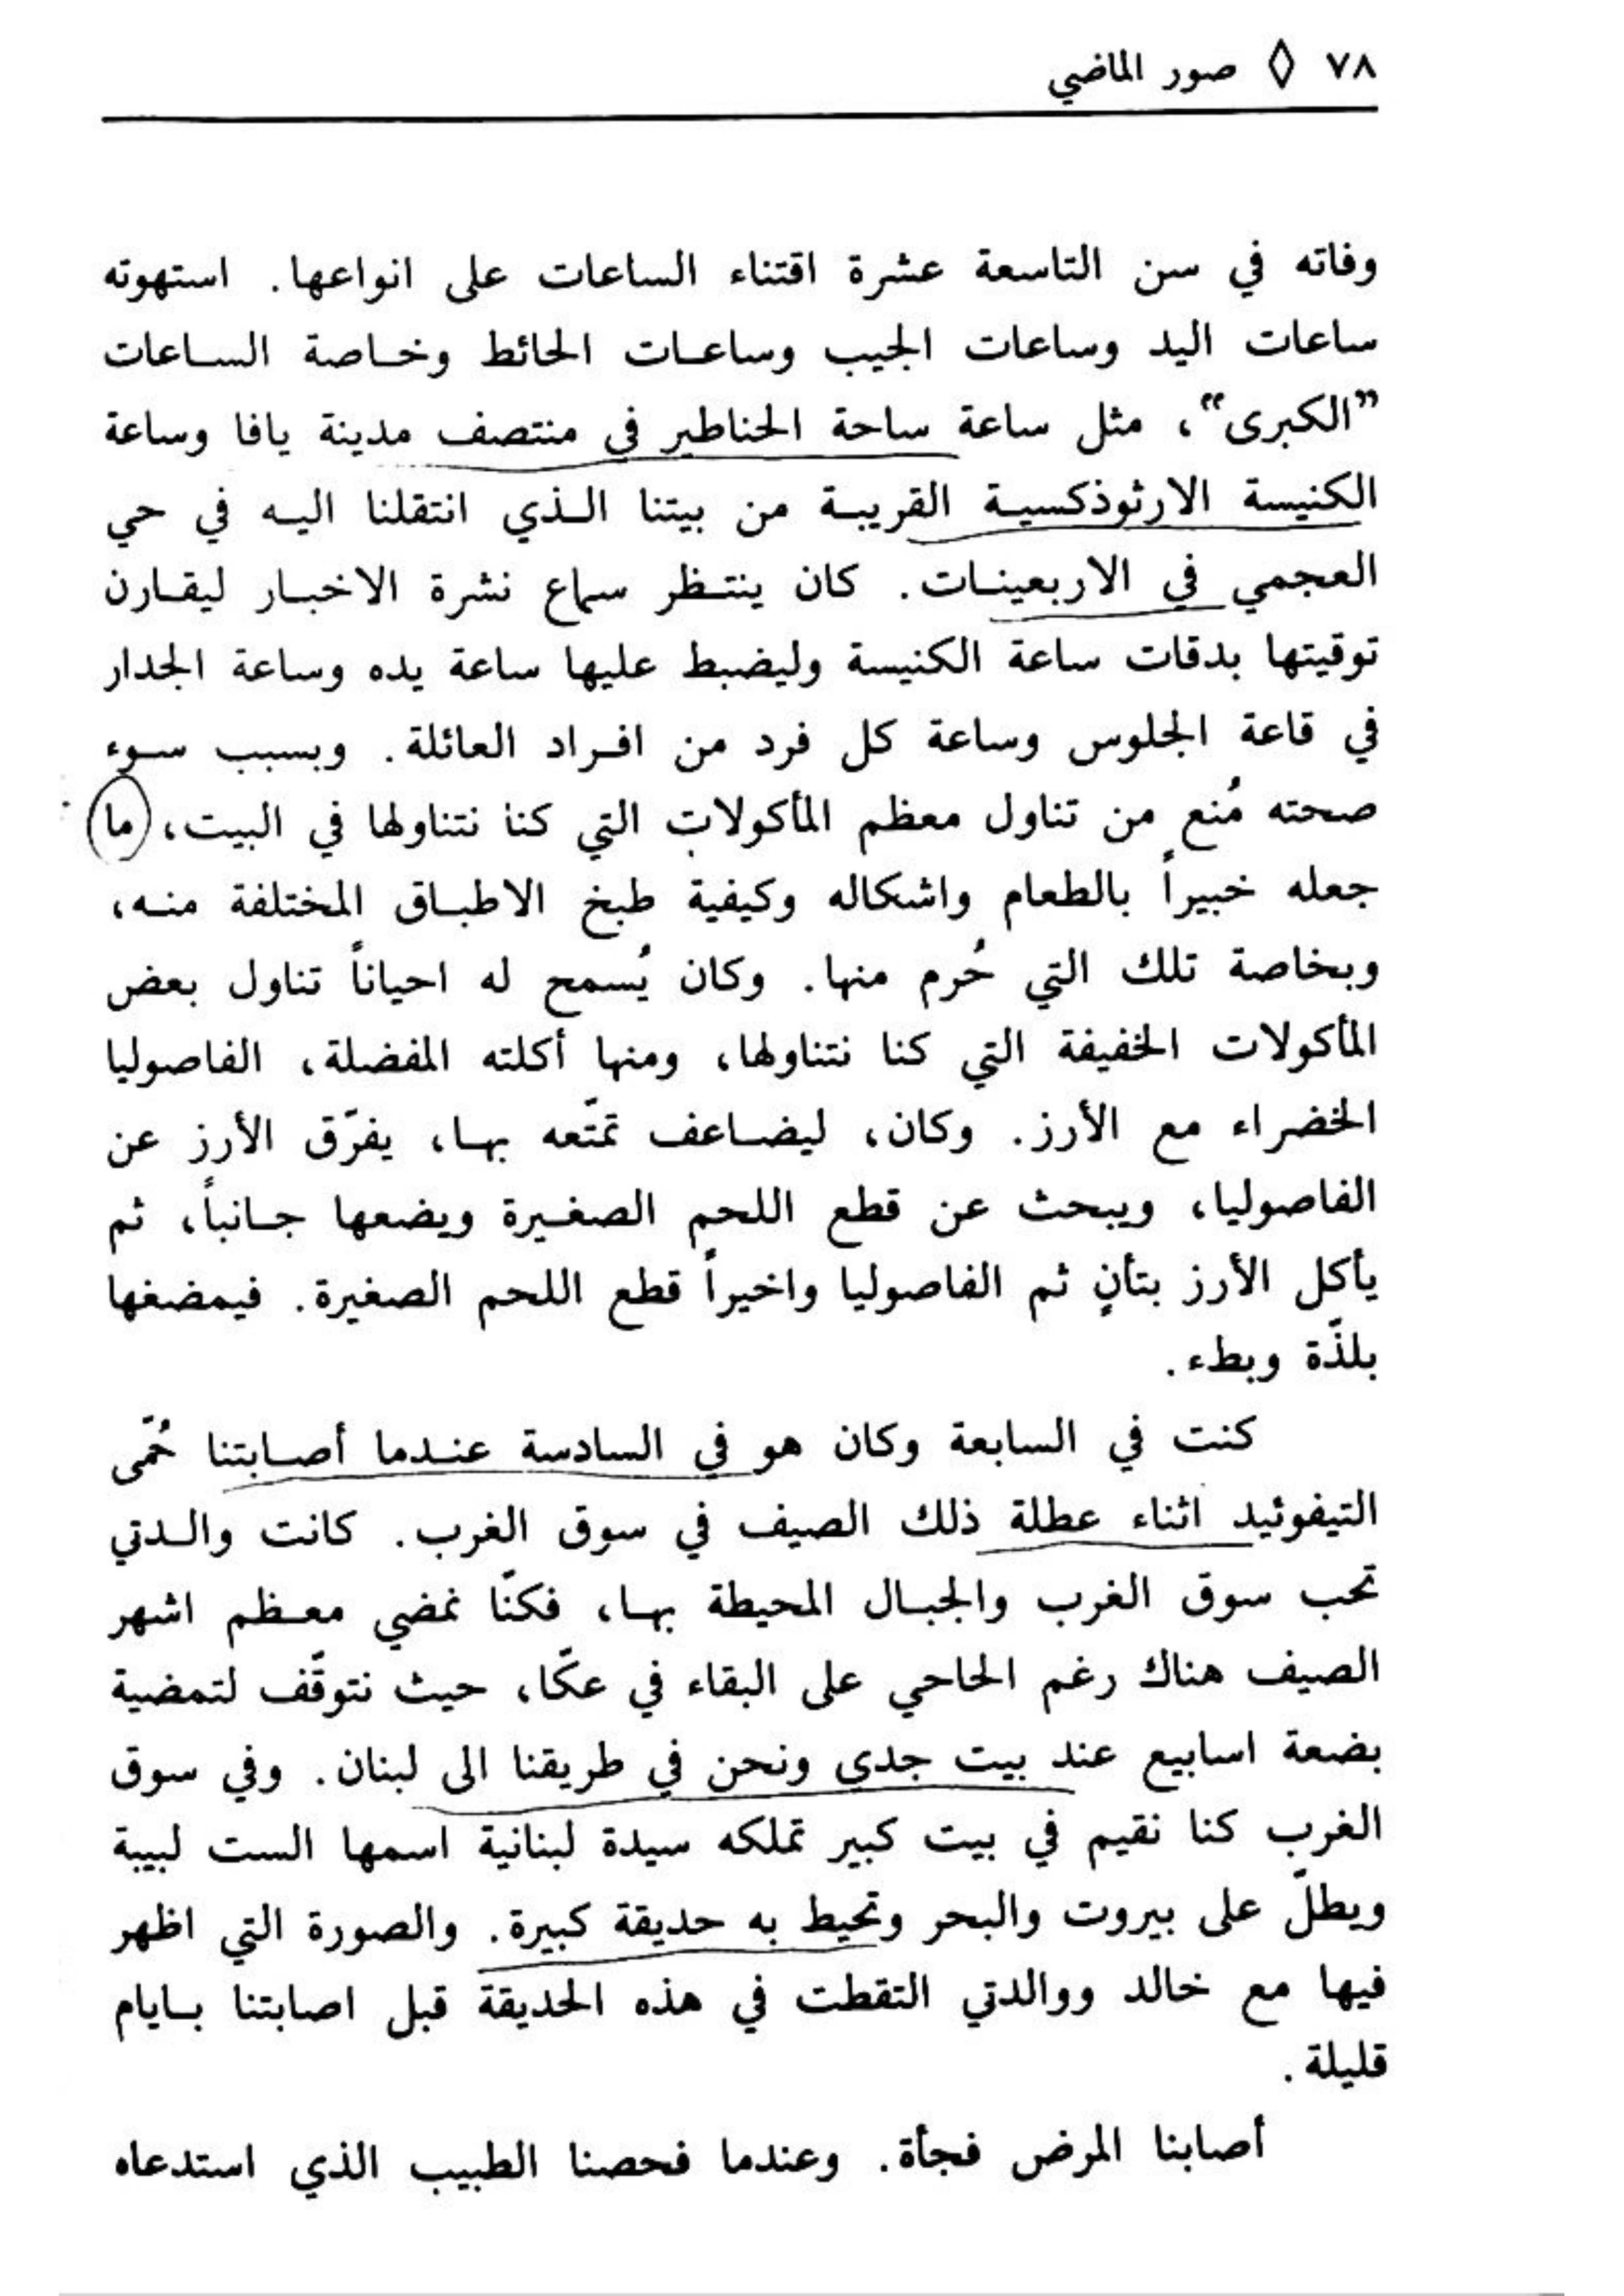 ٧٨ ◊ صور الماضي
وفاته في سن التاسعة عشرة اقتناء الساعات على انواعها. استهوته
ساعات اليد وساعات الجيب وساعات الحائط وخاصة الساعات
”الكبرى“، مثل ساعة ساحة الحناطير في منتصف مدينة يافا وساعة
الكنيسة الارثوذكسية القريبة من بيتنا الذي انتقلنا اليه في حي
العجمي في الاربعينات. كان ينتظر سماع نشرة الاخبار ليقارن
توقيتها بدقات ساعة الكنيسة وليضبط عليها ساعة يده وساعة الجدار
في قاعة الجلوس وساعة كل فرد من افراد العائلة. وبسبب سوء
صحته مُنع من تناول معظم المأكولات التي كنا نتناولها في البيت، ما
جعله خبيراً بالطعام واشكاله وكيفية طبخ الاطباق المختلفة منه،
وبخاصة تلك التي حُرم منها. وكان يُسمح له احياناً تناول بعض
المأكولات الخفيفة التي كنا نتناولها، ومنها أكلته المفضلة، الفاصوليا
الخضراء مع الأرز. وكان، ليضاعف تمتّعه بها، يفرّق الأرز عن
الفاصوليا، ويبحث عن قطع اللحم الصغيرة ويضعها جانباً، ثم
يأكل الأرز بتأنٍ ثم الفاصوليا واخيراً قطع اللحم الصغيرة. فيمضغها
بلذّة وبطء.
كنت في السابعة وكان هو في السادسة عندما أصابتنا حُمّى
التيفوئيد اثناء عطلة ذلك الصيف في سوق الغرب. كانت والدتي
تحب سوق الغرب والجبال المحيطة بها، فكنّا نمضي معظم اشهر
الصيف هناك رغم الحاحي على البقاء في عكّا، حيث نتوقّف لتمضية
بضعة اسابيع عند بيت جدي ونحن في طريقنا الى لبنان. وفي سوق
الغرب كنا نقيم في بيت كبير تملكه سيدة لبنانية اسمها الست لبيبة
ويطلّ على بيروت والبحر وتحيط به حديقة كبيرة. والصورة التي اظهر
فيها مع خالد ووالدتي التقطت في هذه الحديقة قبل اصابتنا بايام
قليلة.
أصابنا المرض فجأة. وعندما فحصنا الطبيب الذي استدعاه